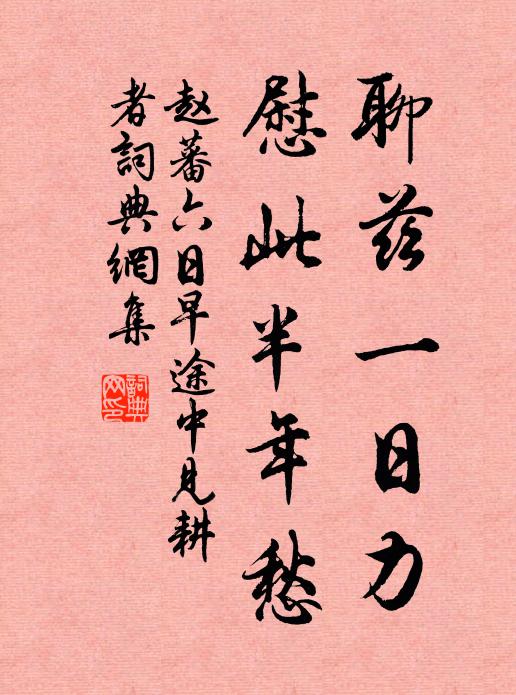 聊茲一日力
慰此半年愁
赵蕃六日早途中見耕
者詞典網集
詞典
网印